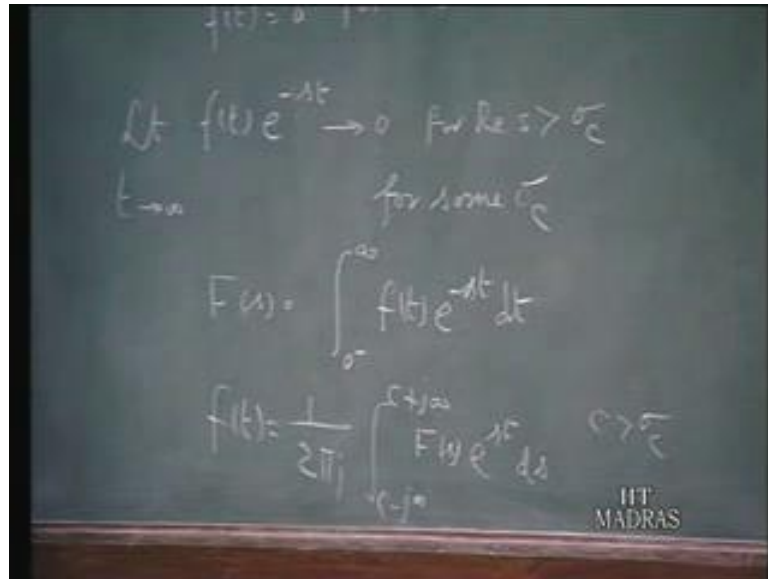 f(t) = 0
Lt f(t) e^{-st} → 0 for Re s > σ_c
t→∞ for some σ_c
F(s) = ∫_{0^-}^{∞} f(t) e^{-st} dt
f(t) = 1/2πj ∫_{c-j∞}^{c+j∞} F(s) e^{st} ds c > σ_c
IIT
MADRAS